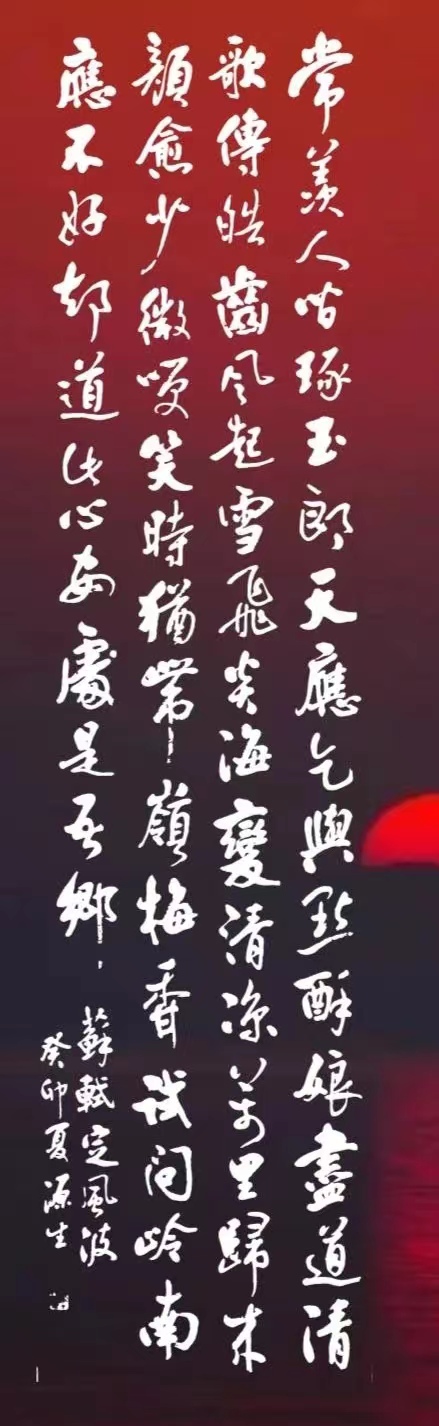 常羨人间琢玉郎天應乞與點酥娘盡道清
歌傳皓齒风起雪飛炎海變清涼萬里歸来
顏愈少微咲笑時猶帶嶺梅香試问岭南
應不好却道此心安處是吾鄉
蘇軾定風波
癸卯夏源生